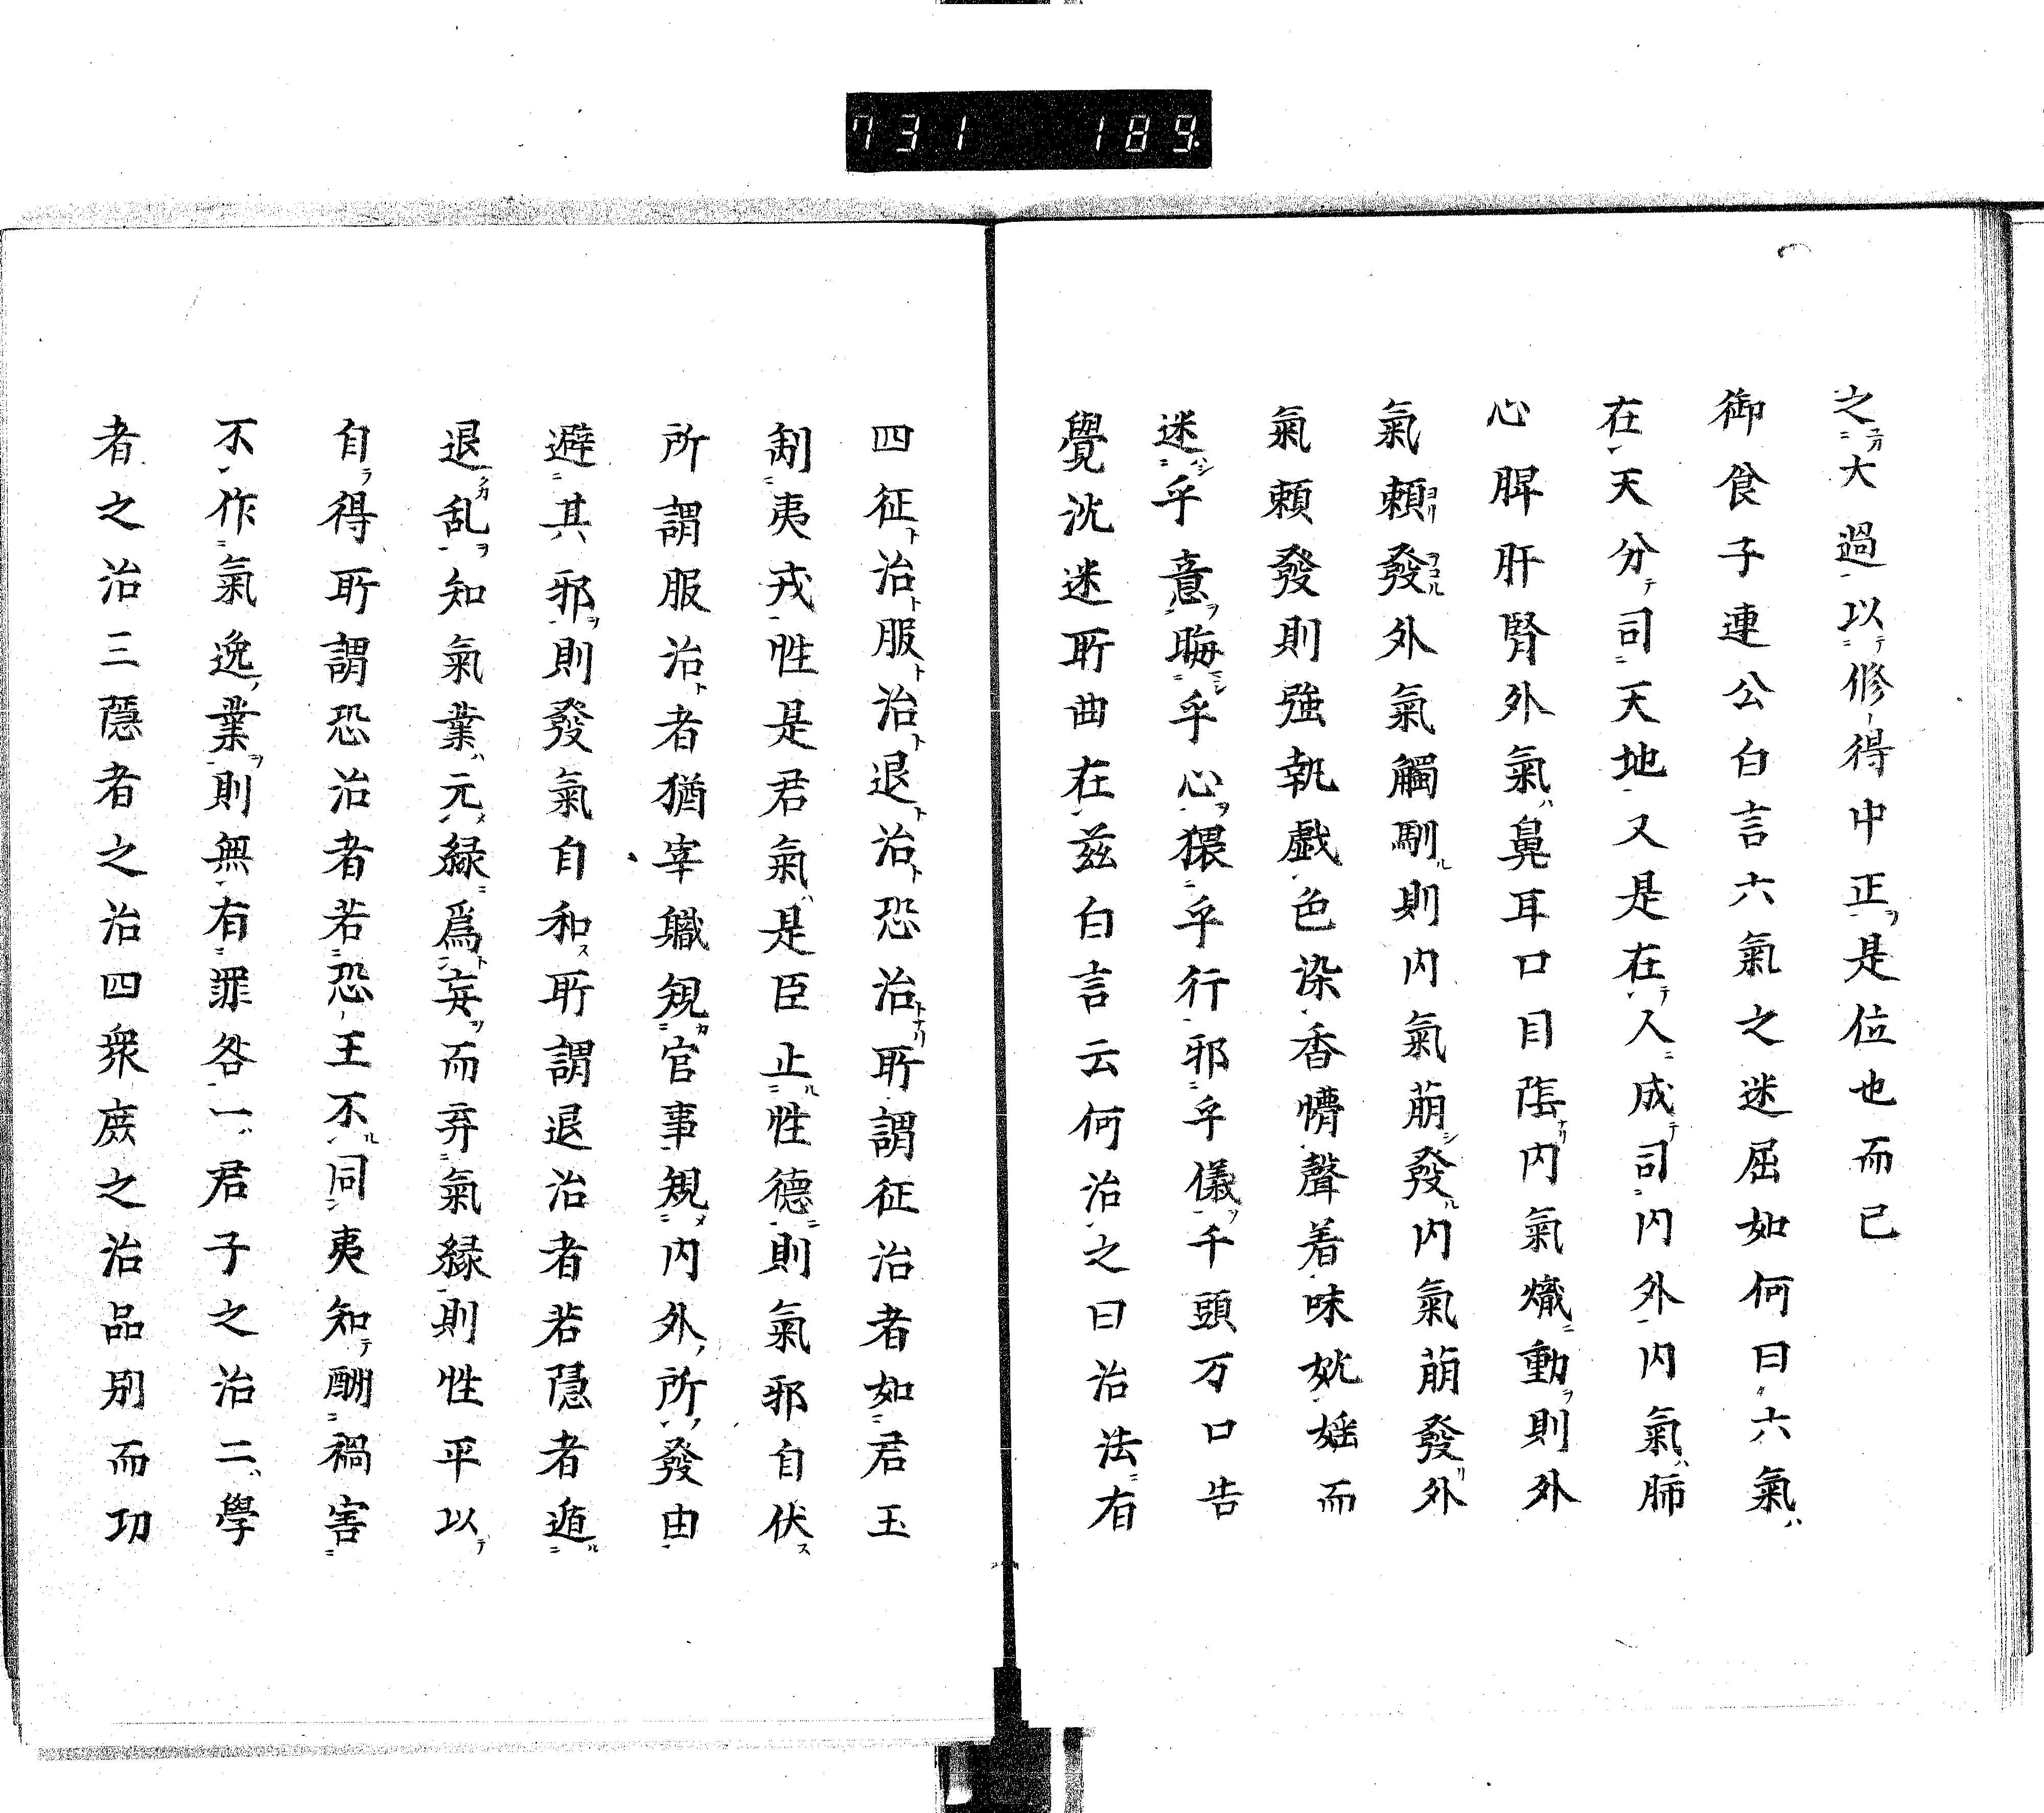 731 189.
之大過以修得中正是位也而已
御食子連公白言六氣之迷屈如何曰六氣
在天分司天地又是在人成司内外内氣肺
心脾肝腎外氣鼻耳口目陰内氣熾動則外
氣頼發外氣觸馴則内氣萠發内氣萠發外
氣頼發則強執戯色染香懵聲着味妣婬而
迷乎意晦乎心猥乎行邪乎儀千頭万口告
覺沈迷所曲在茲白言云何治之曰治法有
四征治服治退治恐治所謂征治者如君王
制夷戎性是君氣是臣止性德則氣邪自伏
所謂服治者猶宰職規官事規内外所發由
避其邪則發氣自和所謂退治者若隱者遁
退乱知氣業元縁爲妄而弃氣縁則性平以
自得所謂恐治者若恐王不同夷知酬禍害
不作氣逸業則無有罪咎一君子之治二學
者之治三隱者之治四衆庶之治品別而功